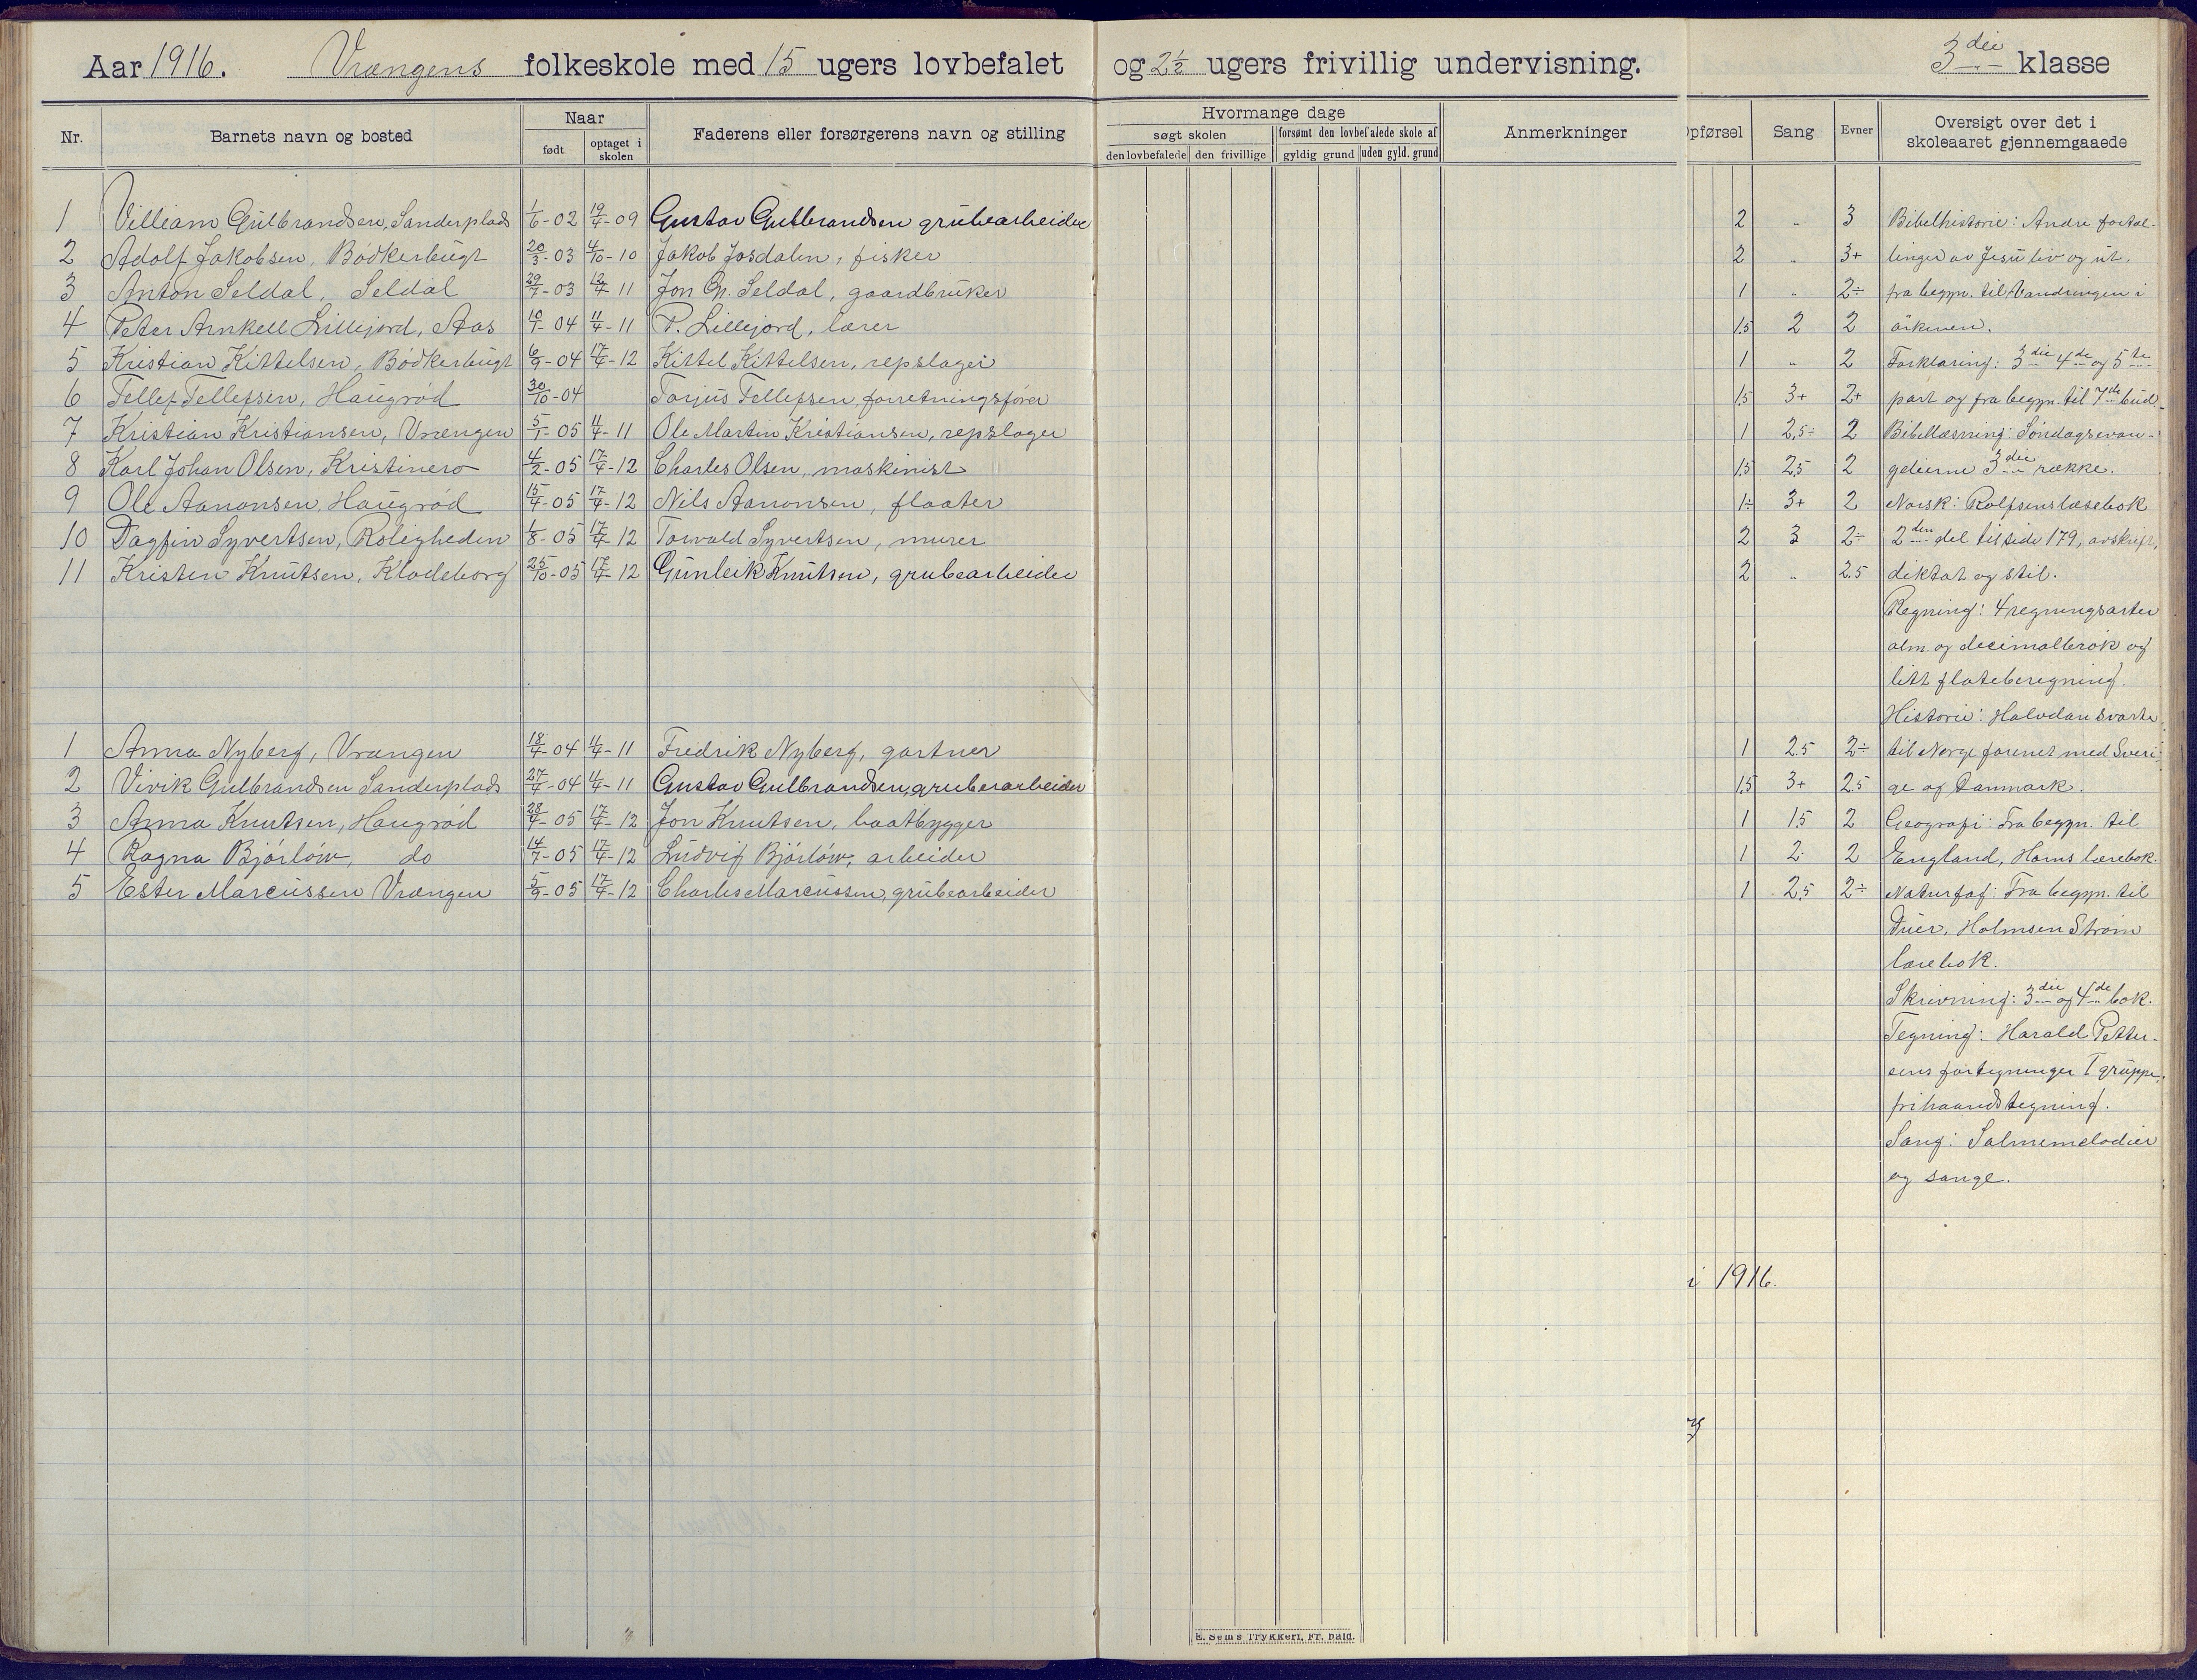 Aar 1916. Vrængens folkeskole med 15 ugers lovbefalet og 2½ ugers frivillig undervisning. 3die klasse
Nr. Barnets navn og bosted Naar født optaget i skolen Faderens eller forsørgerens navn og stilling
Hvormange dage søgt skolen den lovbefalede den frivillige forsømt den lovbefalede skole af gyldig grund uden gyld. grund Anmerkninger
Opførsel Sang Evner Oversigt over det i skoleaaret gjennemgaaede
1 Villiam Gulbrandsen, Sanderplads 1/6-02 19/4-09 Gustav Gulbrandsen grubearbeider 2 „ 3
2 Adolf Jakobsen, Bödkerbugt 20/3-03 4/10-10 Jakob Josdalen, fisker 2 „ 3+
3 Anton Seldal, Seldal 29/7-03 19/4-11 Jon Gr. Seldal, gaardbruker 1 „ 2÷
4 Peter Arnkell Lillejord, Aas 10/1-04 4/4-11 P. Lillejord, lærer 1,5 2 2
5 Kristian Kittelsen, Bödkerbugt 6/9-04 17/4-12 Kittel Kittelsen, repslager 1 „ 2
6 Tellef Tellefsen, Haugröd 30/10-04 Torjus Tellefsen, forretningsförer 1,5 3+ 2+
7 Kristian Kristiansen, Vrængen 5/1-05 4/4-11 Ole Martin Kristiansen, repslager 1 2,5÷ 2
8 Karl Johan Olsen, Kristinero 4/2-05 17/4-12 Charles Olsen, maskinist 1,5 2,5 2
9 Ole Aanonsen, Haugröd 15/4-05 17/4-12 Nils Aanonsen, flaater 1÷ 3+ 2
10 Dagfin Syvertsen, Roligheden 1/8-05 17/4 12 Torvald Syvertsen, murer 2 3 2÷
11 Kristen Knutsen, Klodeborg 25/10-05 17/4 12 Gunleik Knutsen, grubearbeider 2 „ 2.5
1 Anna Nyberg, Vrængen 18/4-04 4/4-11 Fredrik Nyberg, gartner 1 2.5 2÷
2 Vivik Gulbrandsen Sanderplads 27/4-04 4/4-11 Gustav Gulbrandsen, gruberarbeider 1,5 3+ 2.5
3 Anna Knutsen, Haugröd 28/4-05 17/4-12 Jon Knutsen, baatbygger 1 1.5 2
4 Ragna Björlöw, do 14/7-05 17/4-12 Ludvig Björlöw, arbeider 1 2 2
5 Ester Marcussen Vrængen 5/9-05 17/4-12 Charles Marcussen, grubearbeider 1 2,5 2÷
Bibelhistorie: Andre fortæl-
linger av Jesu liv og ut,
fra begyn. til Vandringen i
örkenen.
Forklaring: 3die 4de og 5te
part og fra begyn. til 7de bud.
Bibellæsning: Söndagsevan-
gelierne 3die række.
Norsk: Rolfsens læsebok
2den del til side 179, avskrift,
diktat og stil.
Regning: 4 regningsarter
alm. og decimalbrök og
litt flateberegning.
Historie: Halvdan Svarte
til Norge forenet med Sveri-
ge og Danmark.
Geografi: Fra begyn. til
England, Horns lærebok.
Naturfag: Fra begyn. til
Duer, Holmsen Ström
lærebok.
Skrivning: 3die og 4de bok.
Tegning: Harald Petter-
sens fortegninger I gruppe,
frihaandstegning.
Sang: Salmemelodier
og sange.
i 1916.
E. Sems Trykkeri, Fr. hald.